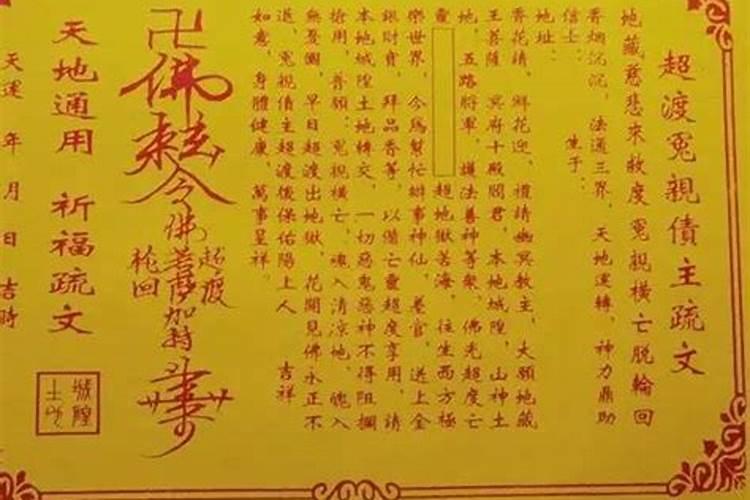 超渡冤親債主疏文
地藏慈悲來救度 冤親橫亡脫輪回
香烟沉沉，法通三界，天地運轉，神力鼎助
信士： 生于：
地址：
香花請，鮮花迎，禮請幽冥教主，大願地藏
王菩薩 冥府十殿閻君，本地城隍，山神土
地，五路將軍，護法善神等衆，佛光超度亡
靈 超地獄苦海，往生西方極
樂世界，今爲幫忙辦事神仙，差官，送上金
銀財寶，拜品香等，以備亡靈超度享用，請
本地城隍土地轉交，一切惡鬼惡神不得阻攔
搶用，普願：冤親橫亡，魂入清凉地，魄入
無憂國，早日超渡出地獄，花開見佛永正不
退，冤親債主超渡後保佑陽上人 吉祥
如意，身體健康，萬事呈祥。
卍佛
敕令
佛菩薩加持
超度
輪回
天地通用 祈福疏文
城隍
土地
天運 年 月 日 吉時